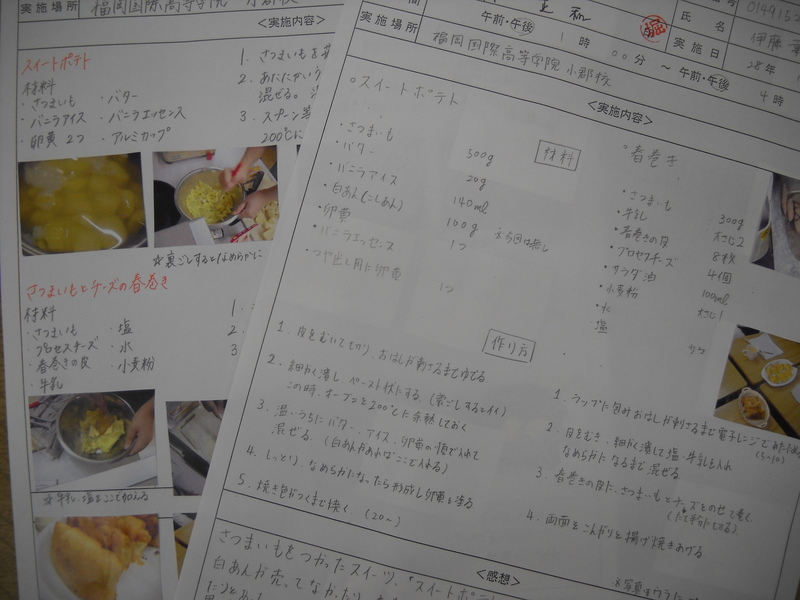 実施場所
福岡国際高等学院
<実施内容>
スイートポテト
材料
・さつまいも ・バター
・バニラアイス ・バニラエッセンス
・卵黄 2つ ・アルミカップ
1. さつまいもを
2. あたたかいう
混ぜる。
3. スプーン
200℃に
☆裏ごしするとなめらかに
さつまいもとチーズの春巻き
材料
・さつまいも ・塩
・プロセスチーズ ・水
・春巻きの皮 ・小麦粉
・牛乳
1.
2.
3
☆牛乳、塩をここで加える
午前・午後 1時 00分 ~ 午前・午後 4時
氏名 伊藤
実施日 28年
実施場所
福岡国際高等学院 小郡校
<実施内容>
○スイートポテト
材料
・さつまいも 500g
・バター 20g
・バニラアイス 140ml
・白あん(こしあん) 100g ※今回は無し
・卵黄 1つ
・バニラエッセンス
・つや出し用に卵黄 1つ
作り方
1. 皮をむいて切り、おはしが刺さるまでゆでる
2. 細かく潰し、ペースト状にする (裏ごしするとイイ)
この時、オーブンを200℃に余熱しておく
3. 温いうちにバター、アイス、卵黄の順で入れて
混ぜる。(白あんがあればここで入れる)
4. しっとり、なめらかになったら形成し卵黄を塗る
5. 焼き色がつくまで焼く。(20~)
○春巻き
・さつまいも 300g
・牛乳 大さじ2
・春巻きの皮 8枚
・プロセスチーズ 4個
・サラダ油 100ml
・小麦粉 大さじ1
・水
・塩 少々
1. ラップに包みおはしが刺さるまで電子レンジであたため
2. 皮をむき、細かく潰して塩、牛乳を入れ
なめらかになるまで混ぜる
3. 春巻きの皮に、さつまいもとチーズをのせて巻く
4. 両面をこんがりと揚げ焼きあげる
<感想>
さつまいもをつかったスイーツ、"スイートポテト
白あんが売ってなかったり